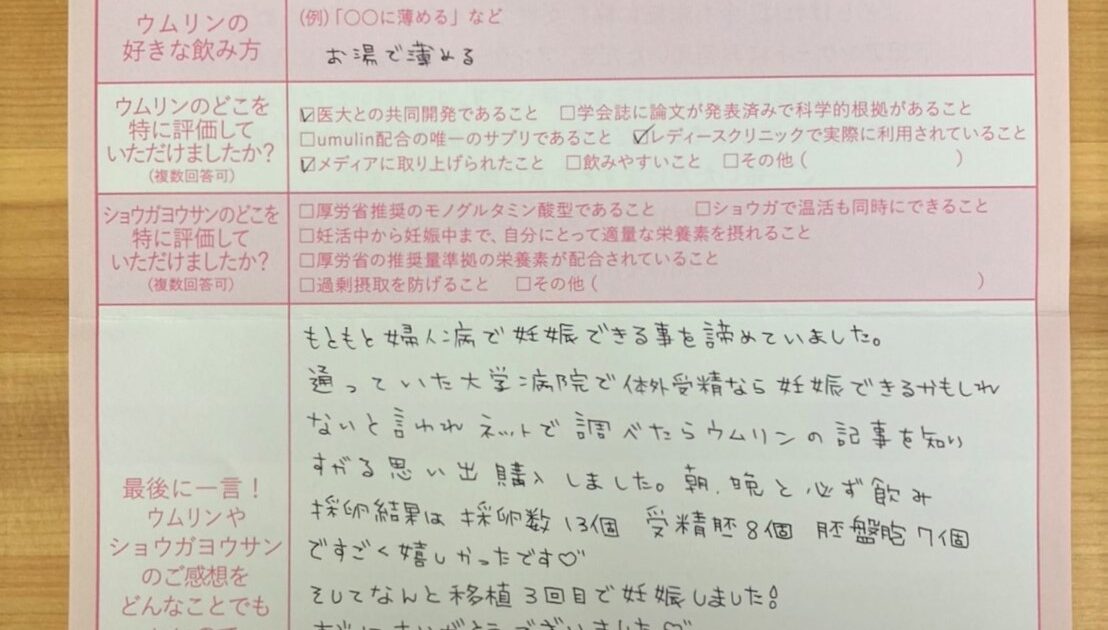 ウムリンの
好きな飲み方
(例)「〇〇に薄める」など
お湯で薄める
ウムリンのどこを
特に評価して
いただけましたか?
(複数回答可)
☑医大との共同開発であること □学会誌に論文が発表済みで科学的根拠があること
□umulin配合の唯一のサプリであること ☑レディースクリニックで実際に利用されていること
☑メディアに取り上げられたこと □飲みやすいこと □その他 ( )
ショウガヨウサンのどこを
特に評価して
いただけましたか?
(複数回答可)
□厚労省推奨のモノグルタミン酸型であること □ショウガで温活も同時にできること
□妊活中から妊娠中まで、自分にとって適量な栄養素を摂れること
□厚労省の推奨量準拠の栄養素が配合されていること
□過剰摂取を防げること □その他 ( )
最後に一言!
ウムリンや
ショウガヨウサン
のご感想を
どんなことでも
もともと婦人病で妊娠できる事を諦めていました。
通っていた大学病院で体外受精なら妊娠できるかもしれ
ないと言われネットで調べたらウムリンの記事を知り
すがる思い出購入しました。朝、晩と必ず飲み
採卵結果は採卵数13個 受精胚8個 胚盤胞7個
ですごく嬉しかったです♡
そしてなんと移植3回目で妊娠しました!
ありがとうございました♡